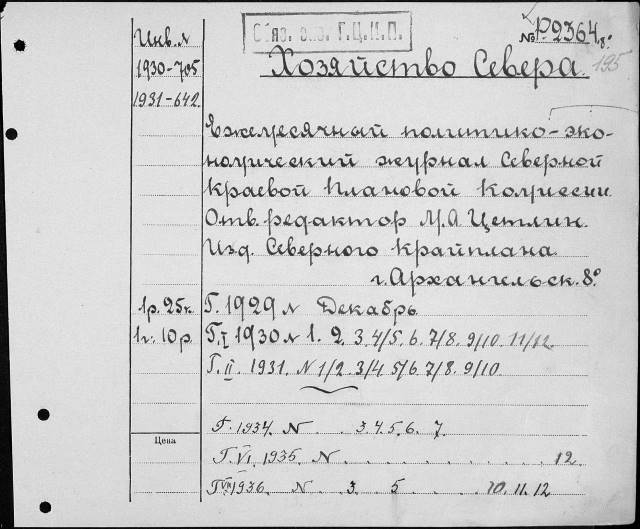 Обяз. экз. Г.Ц.К.П.
№ Р.2364 8°
195
Инв. №
1930-705
1931-642
Хозяйство Севера.
Ежемесячный политико-эко-
номический журнал Северной
Краевой Плановой Комиссии.
Отв. редактор М.А. Цетлин.
Изд. Северного Крайплана.
г. Архангельск. 8°
1р. 25к. Г. 1929 № Декабрь
1 г. 10 р. Г. I 1930 № 1. 2. 3. 4/5. 6. 7/8. 9/10. 11/12
Г. II. 1931. N 1/2 3/4 5/6. 7/8. 9/10
Г. 1934. N . . 3. 4. 5. 6. 7
Цена
Г. VI. 1935. N . . . . . . . . . . 12
Г. VII 1936. N . 3 . 5 . . . . 10. 11. 12